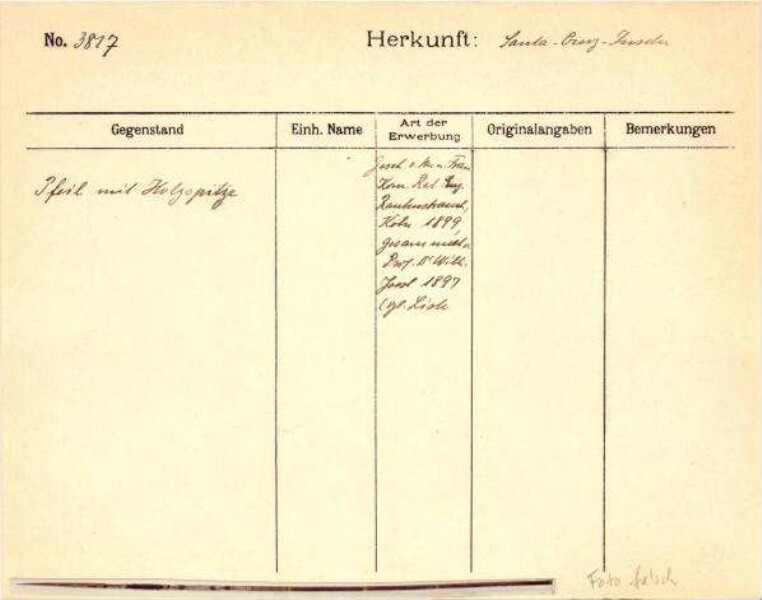 No. 3817 Herkunft: Santa-Cruz-Inseln
Gegenstand Einh. Name Art der Erwerbung Originalangaben Bemerkungen
Pfeil mit Holzspitze
Gesch. v. Frau
Kom. Rat Eug.
Rautenstrauch,
Köln 1899,
gesammelt v.
Prof. Dr. Wilh.
Joest 1897
(vgl. Liste
Foto falsch